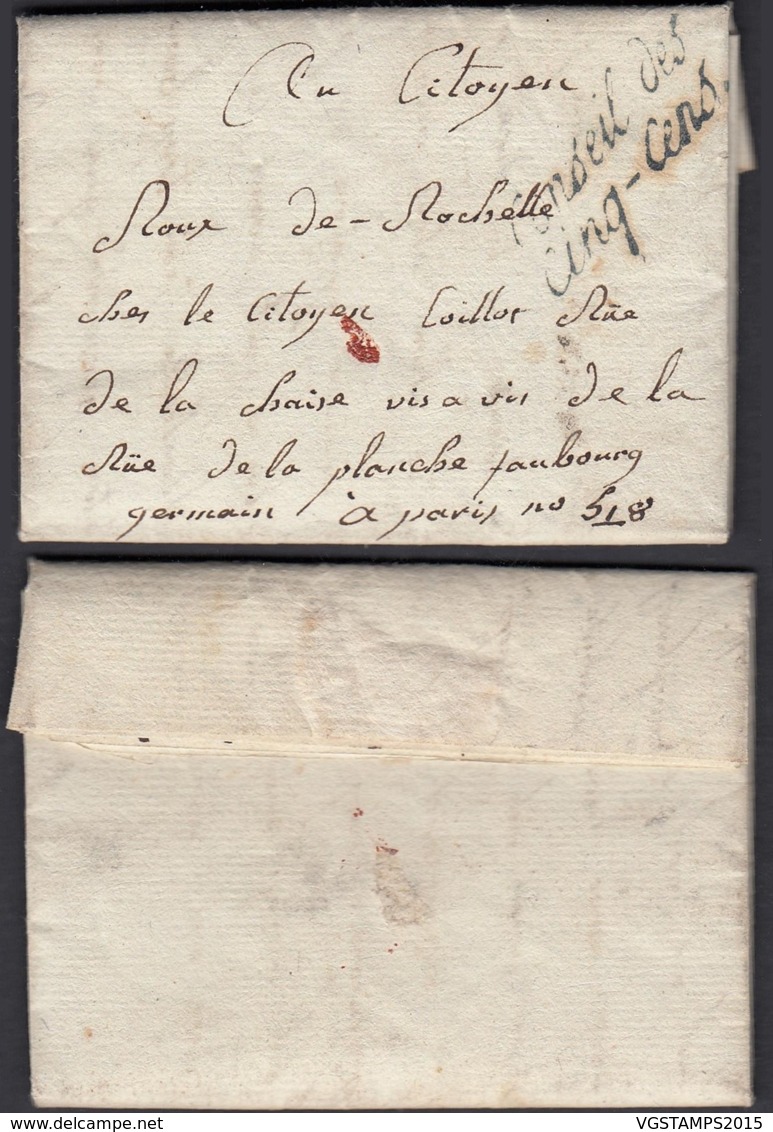 Au Citoyen
Conseil des
Cinq-Cens.
Roux de-Rochelle
ches le Citoyen Coillot Rüe
de la chaise vis a vis de la
Rüe de la planche faubourg
germain à paris no 518
VGSTAMPS2015